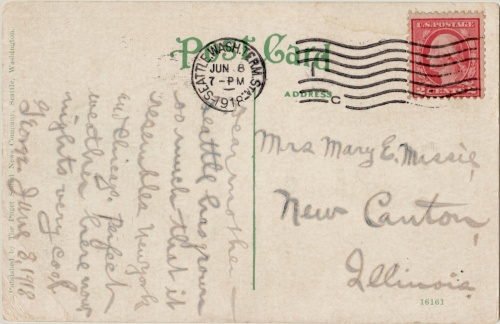 Post Card
SEATTLE, WASH. TERM. STA.
JUN 8
7-PM
1918
C
U.S. POSTAGE
2 CENTS 2
ADDRESS
Mrs Mary E. Missie,
New Canton,
Illinois.
16161
Dear mother –
Seattle has grown
so much that it
resembles New York
and Chicago. perfect
weather here now
nights very cool
June 8, 1918
Published by The Puget Sound News Company, Seattle, Washington.